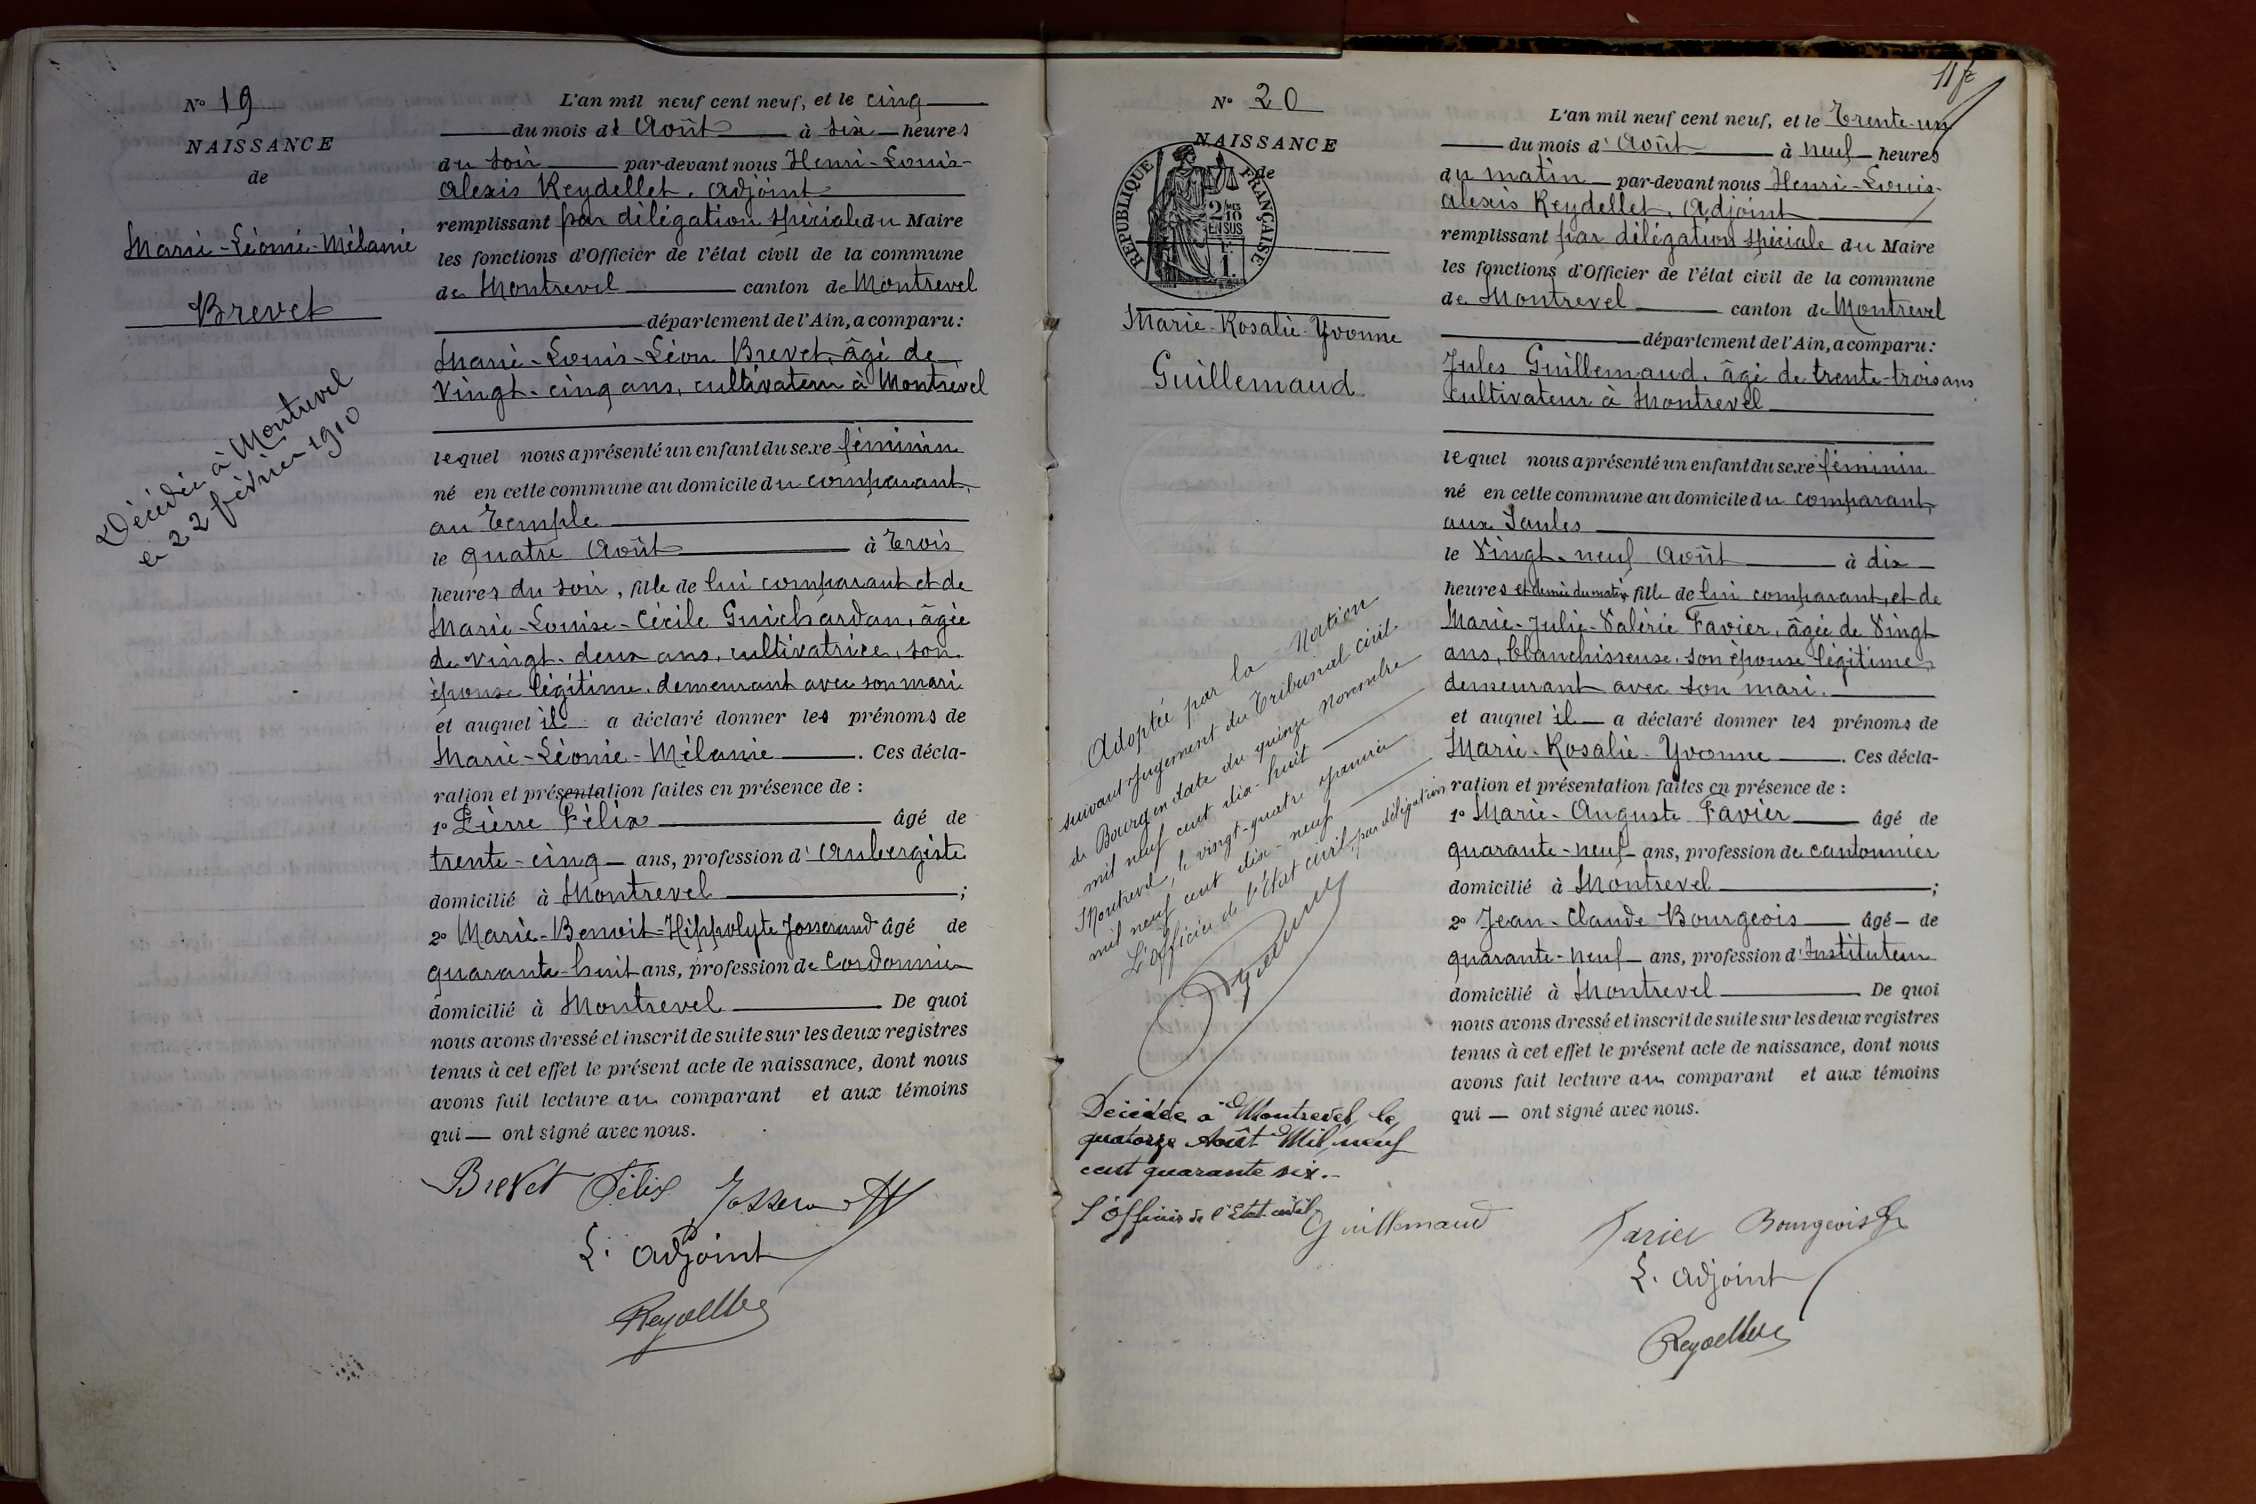 N° 19
NAISSANCE
de
Marie-Léonie-Mélanie
Brevet
Décédée à Montrevel
le 22 février 1910
L'an mil neuf cent neuf, et le cinq
du mois d'Août à six heures
du soir par-devant nous Henri-Louis-
Alexis Reydellet, Adjoint
remplissant par délégation spéciale du Maire
les fonctions d'Officier de l'état civil de la commune
de Montrevel canton de Montrevel
département de l'Ain, a comparu :
Marie-Louis-Léon Brevet, âgé de
vingt-cinq ans, cultivateur à Montrevel
lequel nous a présenté un enfant du sexe féminin
né en cette commune au domicile du comparant,
au Temple
le quatre Août à trois
heures du soir, fille de lui comparant et de
Marie-Louise-Cécile Guichardan, âgée
de vingt-deux ans, cultivatrice, son
épouse légitime, demeurant avec son mari
et auquel il a déclaré donner les prénoms de
Marie-Léonie-Mélanie. Ces décla-
ration et présentation faites en présence de :
1° Pierre Félix âgé de
trente-cinq ans, profession d'Aubergiste
domicilié à Montrevel ;
2° Marie-Benoit-Hippolyte Josserand âgé de
quarante-huit ans, profession de Cordonnier
domicilié à Montrevel De quoi
nous avons dressé et inscrit de suite sur les deux registres
tenus à cet effet le présent acte de naissance, dont nous
avons fait lecture au comparant et aux témoins
qui ont signé avec nous.
Brevet Félix Josserand
L'Adjoint
Reydellet
117
N° 20
NAISSANCE
de
REPUBLIQUE FRANÇAISE
2/10 EN SUS
Marie-Rosalie-Yvonne
Guillemaud
Adoptée par la Nation
suivant jugement du Tribunal civil
de Bourg en date du quinze novembre
mil neuf cent dix-huit
Montrevel, le vingt-quatre janvier
mil neuf cent dix-neuf
L'Officier de l'Etat civil par délégation
Décédée à Montrevel le
quatorze Août Mil neuf
cent quarante six.-
L'Officier de l'Etat-civil
L'an mil neuf cent neuf, et le Trente-un
du mois d'Août à neuf heures
du matin par-devant nous Henri-Louis-
Alexis Reydellet, Adjoint
remplissant par délégation spéciale du Maire
les fonctions d'Officier de l'état civil de la commune
de Montrevel canton de Montrevel
département de l'Ain, a comparu :
Jules Guillemaud, âgé de trente-trois ans
cultivateur à Montrevel
lequel nous a présenté un enfant du sexe féminin
né en cette commune au domicile du comparant,
aux Saules
le vingt-neuf Août à dix
heures et demie du matin fille de lui comparant, et de
Marie-Julie-Valérie Favier, âgée de vingt
ans, blanchisseuse, son épouse légitime,
demeurant avec son mari.
et auquel il a déclaré donner les prénoms de
Marie-Rosalie-Yvonne. Ces décla-
ration et présentation faites en présence de :
1° Marie-Auguste Favier âgé de
quarante-neuf ans, profession de cantonnier
domicilié à Montrevel ;
2° Jean-Claude Bourgeois âgé de
quarante-neuf ans, profession d'Instituteur
domicilié à Montrevel De quoi
nous avons dressé et inscrit de suite sur les deux registres
tenus à cet effet le présent acte de naissance, dont nous
avons fait lecture au comparant et aux témoins
qui ont signé avec nous.
Guillemaud Favier Bourgeois
L'Adjoint
Reydellet